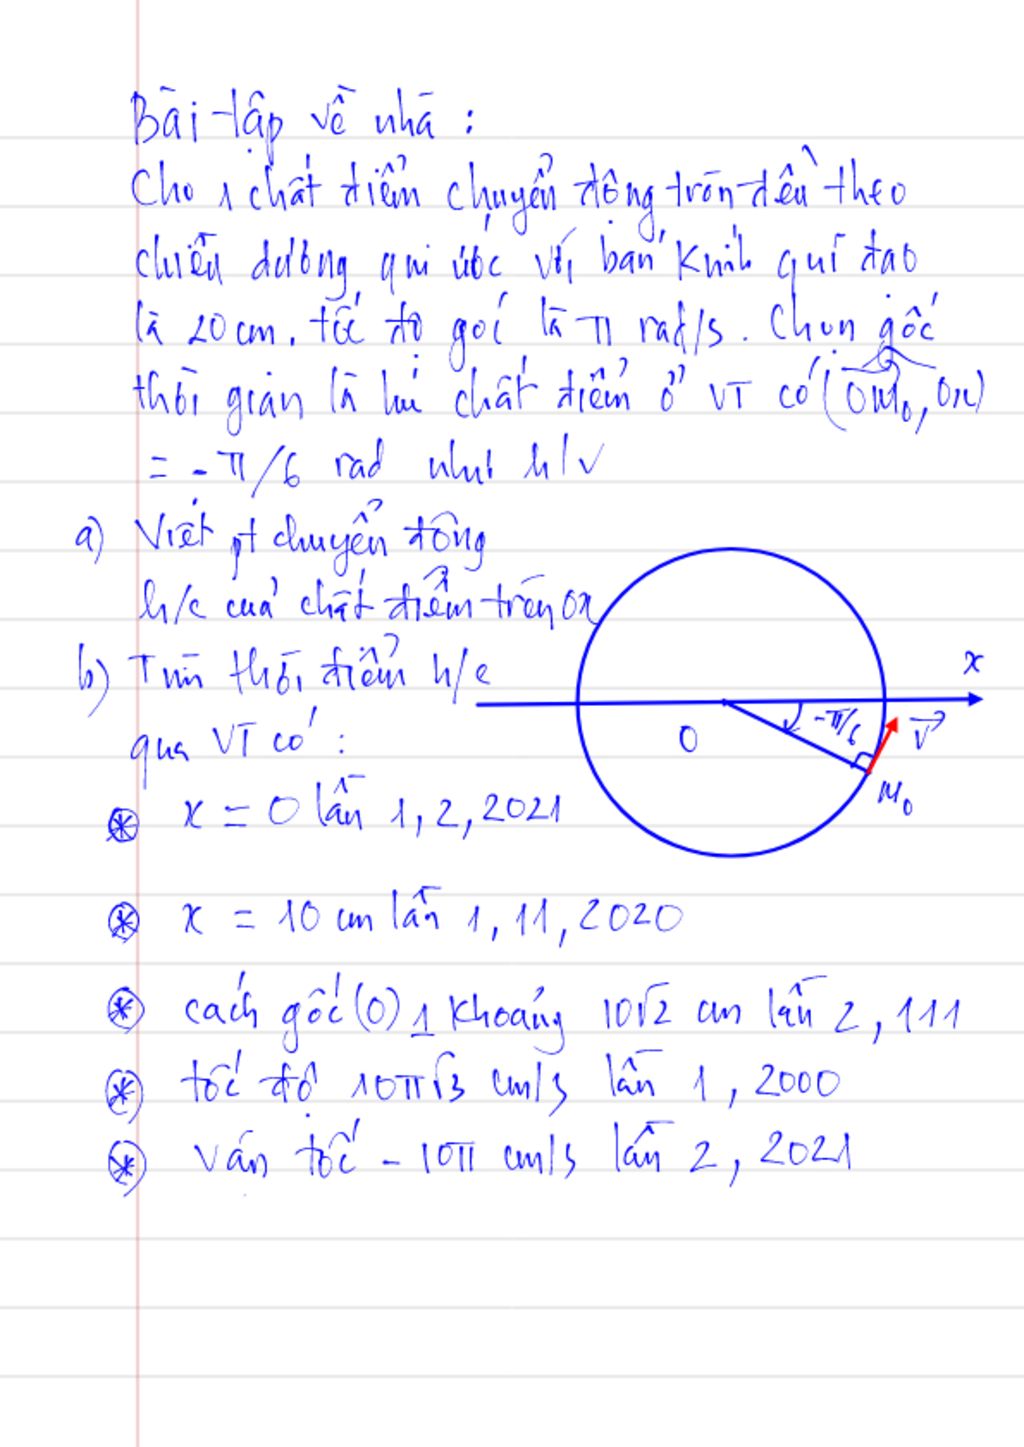 Bài tập về nhà :
Cho 1 chất điểm chuyển động tròn đều theo
chiều dương qui ước với bán kính quĩ đạo
là 20 cm, tốc độ góc là π rad/s. Chọn gốc
thời gian là lúc chất điểm ở VT có (OM₀, Ox)
= -π/6 rad như h/v
a) Viết pt chuyển động
h/c của chất điểm trên Ox
b) Tìm thời điểm h/c
qua VT có :
⊛ x = 0 lần 1, 2, 2021
x
O
-π/6
v⃗
M₀
⊛ x = 10 cm lần 1, 11, 2020
⊛ cách gốc (O) 1 khoảng 10√2 cm lần 2, 111
⊛ tốc độ 10π√3 cm/s lần 1, 2000
⊛ vận tốc - 10π cm/s lần 2, 2021